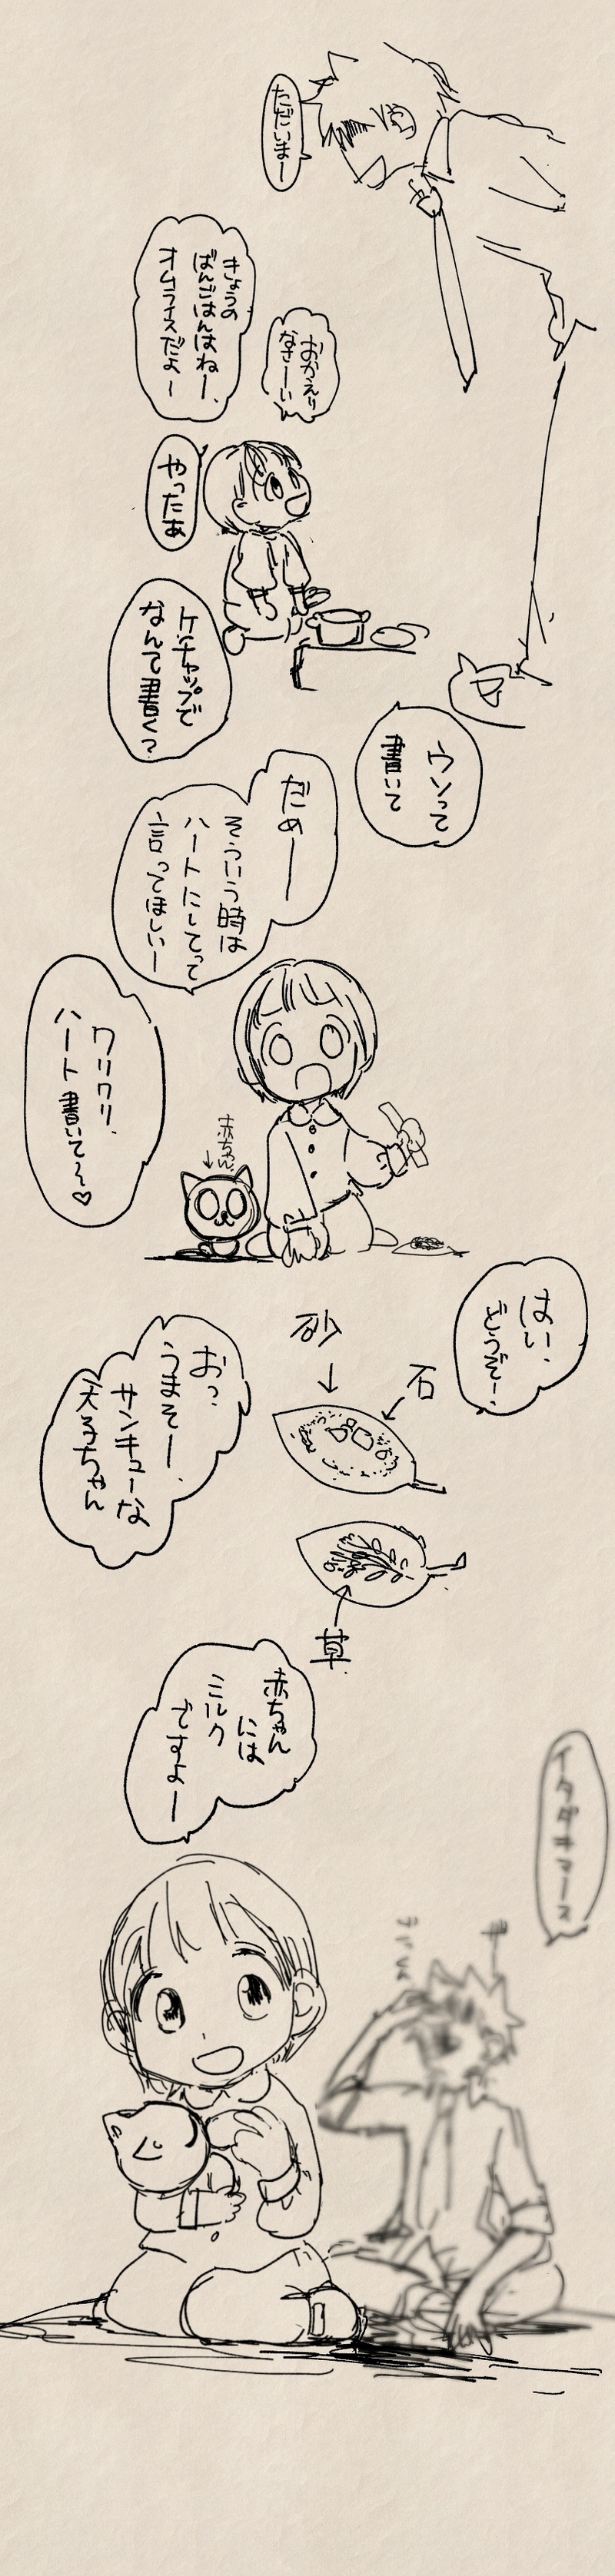 ただいまー
おかえり
なさーい
きょうの
ばんごはんはねー、
オムライスだよー
やったぁ
ケチャップで
なんて書く?
ウソって
書いて
だめー
そういう時は
ハートにしてって
言ってほしいー
ワリワリ、
ハート書いて〜♡
赤ちゃん
はい、
どうぞー、
砂
石
おっ、
うまそー、
サンキューな
天子ちゃん
草
赤ちゃん
には
ミルク
ですよー
イタダキマース